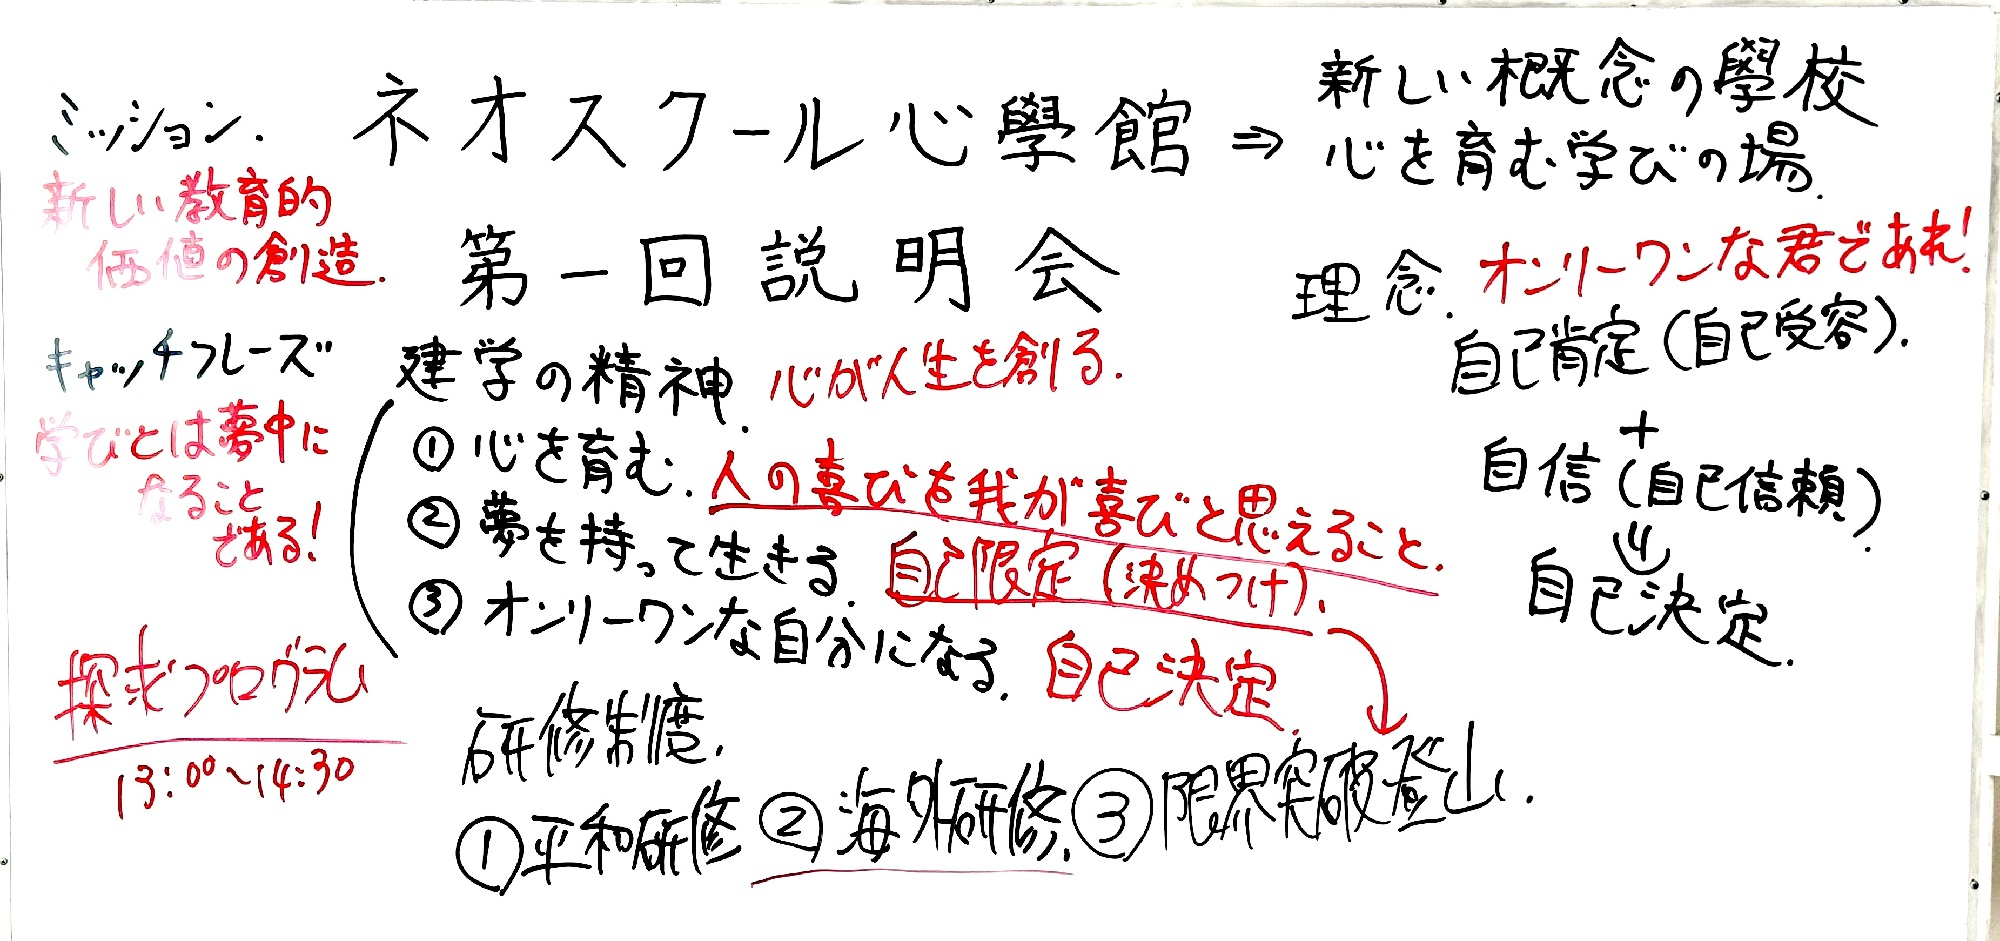 ミッション.
新しい教育的
価値の創造.
キャッチフレーズ
学びとは夢中に
なること
である!
探求プログラム
13:00~14:30
ネオスクール心學館 ⇒
新しい概念の學校
心を育む学びの場.
第一回説明会
理念. オンリーワンな君であれ!
自己肯定(自己受容).
+
自信(自己信頼)
⇓
自己決定.
建学の精神. 心が人生を創る.
① 心を育む. 人の喜びを我が喜びと思えること.
② 夢を持って生きる. 自己限定(決めつけ).
③ オンリーワンな自分になる. 自己決定.
研修制度.
①平和研修 ②海外研修. ③限界突破登山.